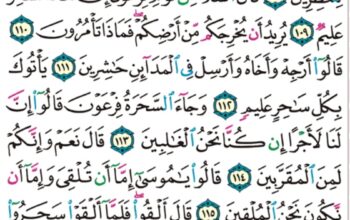 عَلِيمٌ ١٠٩ يُرِيدُ أَن يُخْرِجَكُم مِّنْ أَرْضِكُمْ فَمَاذَا تَأْمُرُونَ ١١٠
قَالُوٓا۟ أَرْجِهْ وَأَخَاهُ وَأَرْسِلْ فِى ٱلْمَدَآئِنِ حَٰشِرِينَ ١١١ يَأْتُوكَ
بِكُلِّ سَٰحِرٍ عَلِيمٍ ١١٢ وَجَآءَ ٱلسَّحَرَةُ فِرْعَوْنَ قَالُوٓا۟ إِنَّ
لَنَا لَأَجْرًا إِن كُنَّا نَحْنُ ٱلْغَٰلِبِينَ ١١٣ قَالَ نَعَمْ وَإِنَّكُمْ
لَمِنَ ٱلْمُقَرَّبِينَ ١١٤ قَالُوا۟ يَٰمُوسَىٰٓ إِمَّآ أَن تُلْقِىَ وَإِمَّآ أَن
نَّكُونَ نَحْنُ ٱلْمُلْقِينَ ١١٥ قَالَ أَلْقُوا۟ فَلَمَّآ أَلْقَوْا۟ سَحَرُوٓا۟